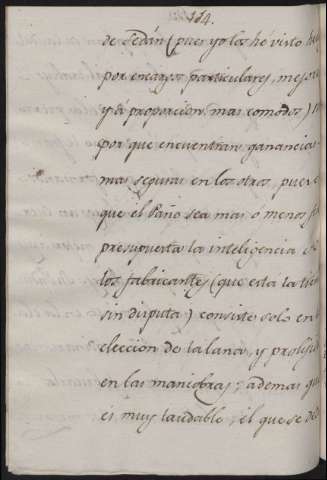 114.
de Sedán (pues yo los hé visto
por encargos particulares, mejores
y á proporcion mas comodos)
por que encuentran ganancias
mas segura en los otros, pues
que el Paño sea mas ó menos
presupuesta la inteligencia
los fabricantes (que esta la
sin disputa) consiste solo en
eleccion de la lana, y prolig
en las maniobras; ademas que
es muy laudable, el que se